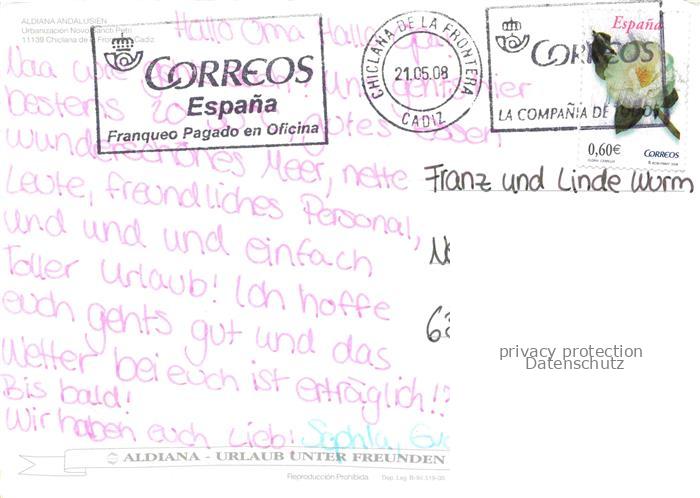 ALDIANA ANDALUSIEN
Urbanización Novo Sancti Petri
11139 Chiclana de la Frontera, Cadiz
Hallo Oma Hallo Opa
Naa wie
bestens gutes essen
wunderschönes Meer, nette
Leute, freundliches Personal,
und und und einfach
Toller Urlaub! Ich hoffe
euch gehts gut und das
Wetter bei euch ist erträglich!?
Bis bald!
Wir haben euch Lieb! Sophia,
CORREOS
España
Franqueo Pagado en Oficina
CHICLANA DE LA FRONTERA
21.05.08
CADIZ
CORREOS
LA COMPAÑIA DE TODOS
España
0,60€
CORREOS
Franz und Linde Wurm
privacy protection
Datenschutz
ALDIANA - URLAUB UNTER FREUNDEN
Reproducción Prohibida